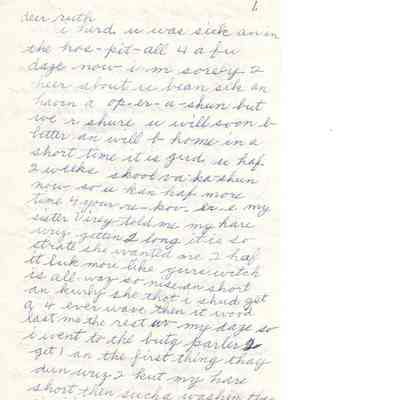 1.
dear ruth
i herd u was sick an in
the hos-pit-all 4 a fu
daze now i m sorely 2
heer about u bean sik an
havn a op-er-a-shun but
we r shure u will soon b
better an will b home in a
short time it is gud u haf
2 weeks skool va-ka-shun
now so u kan haf more
time 4 your re-kov-er-e my
sister Virey told me my hare
wuz getten 2 long it is so
strate she wanted me 2 haf
it luk more like yurs witch
is all-waz so nise an short
an kurly she thot i shud get
a 4 ever wave then it wood
last me the rest uv my daze so
i went to the buty parler 2
get 1 an the first thing thay
dun wuz 2 kut my hare
short then suchs washin thay